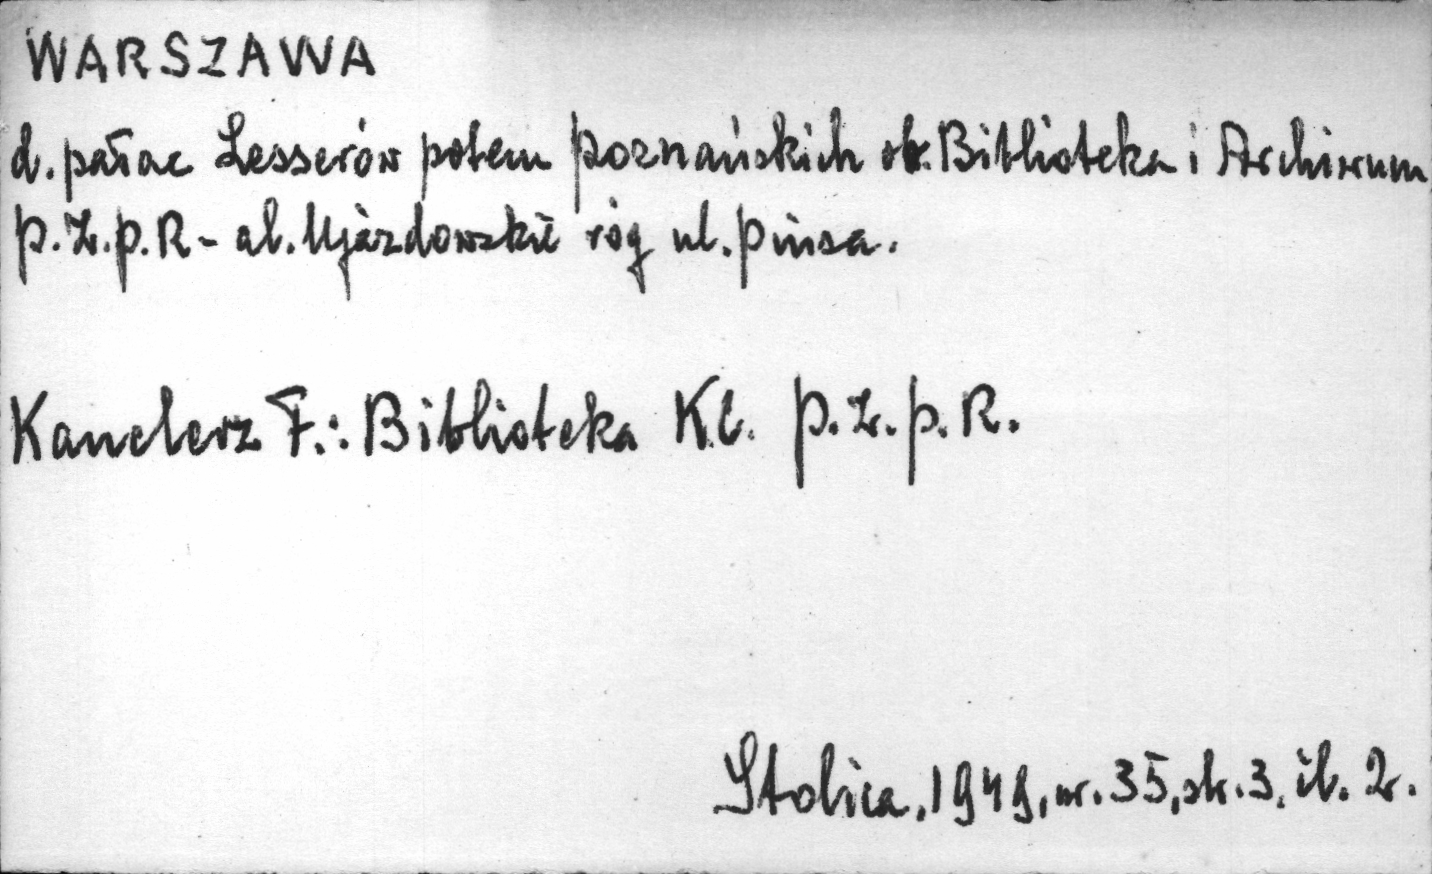 WARSZAWA
d. pałac Lesserów potem Poznańskich ob. Biblioteka i Archiwum
P.Z.P.R - al. Ujazdowskie róg ul. Piusa.
Kanclerz F.: Biblioteka KC. P.Z.P.R.
Stolica, 1949, nr. 35, str. 3, il. 2.